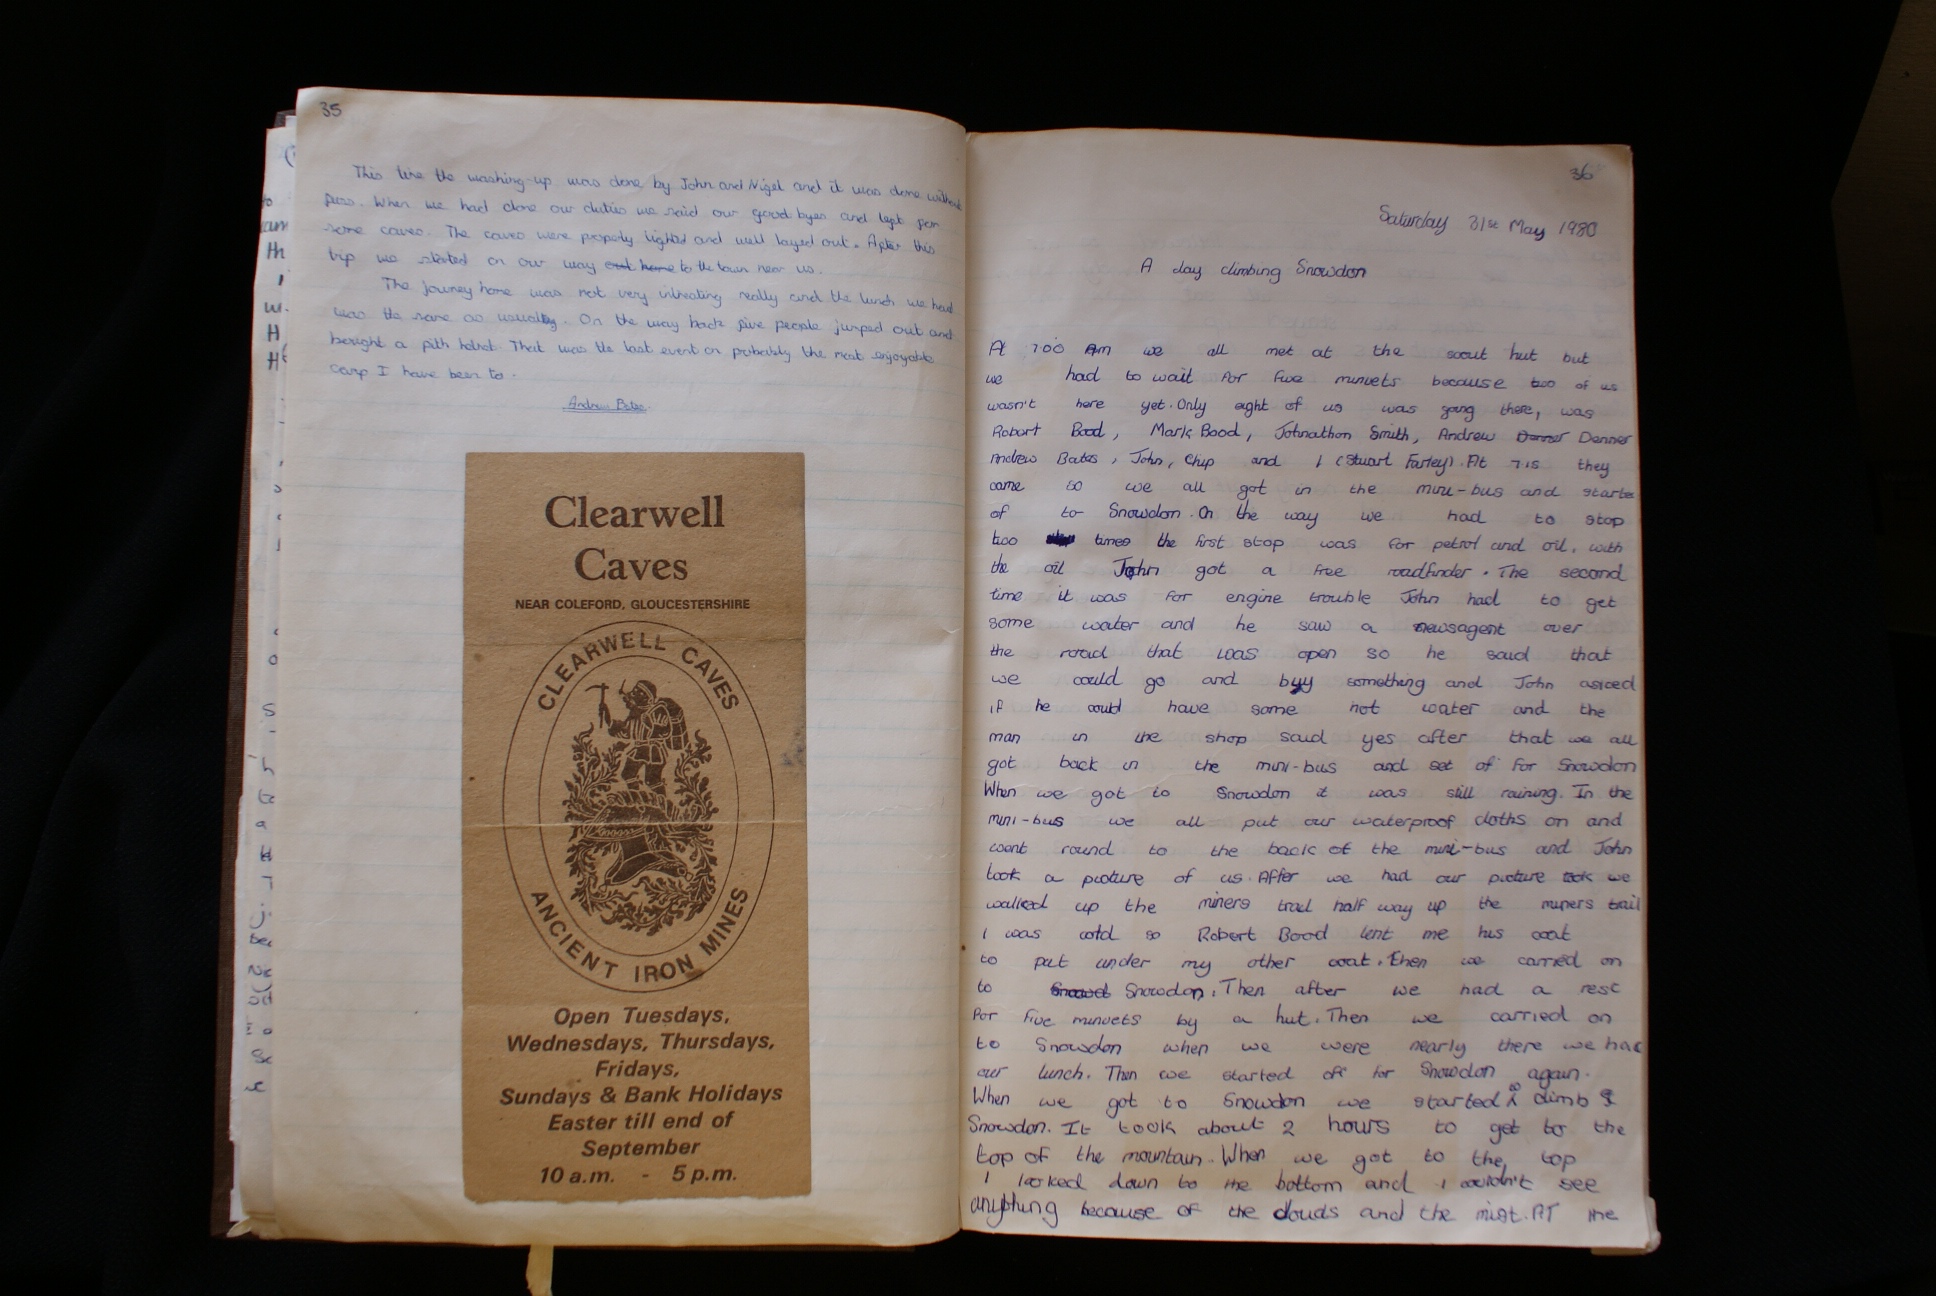 35
This time the washing-up was done by John and Nigel and it was done without
fuss. When we had done our duties we said our goodbyes and left for
some caves. The caves were properly lighted and well layed out. After this
trip we started on our way out home to the town near us.
The journey home was not very intresting really and the lunch we had
was the same as usually. On the way back five people jumped out and
bought a pith helmet. That was the last event on probably the most enjoyable
camp I have been to.
Andrew Bates
Clearwell
Caves
NEAR COLEFORD, GLOUCESTERSHIRE
CLEARWELL CAVES
ANCIENT IRON MINES
Open Tuesdays,
Wednesdays, Thursdays,
Fridays,
Sundays & Bank Holidays
Easter till end of
September
10 a.m. - 5 p.m.
36
Saturday 31st May 1980
A day climbing Snowdon
At 7.00 Am we all met at the scout hut but
we had to wait for five minuets because two of us
wasn't here yet. Only eight of us was going there, was
Robert Bood, Mark Bood, Johnathon Smith, Andrew Denner Denner
Andrew Bates, John, Chip and I (Stuart Farley). At 7.15 they
came so we all got in the mini-bus and started
of to Snowdon. On the way we had to stop
two times the first stop was for petrol and oil, with
the oil John got a free roadfinder. The second
time it was for engine trouble John had to get
some water and he saw a newsagent over
the road that was open so he said that
we could go and buy something and John asked
if he could have some hot water and the
man in the shop said yes after that we all
got back in the mini-bus and set of for Snowdon
When we got to Snowdon it was still raining. In the
mini-bus we all put our waterproof cloths on and
went round to the back of the mini-bus and John
took a picture of us. After we had our picture took we
walked up the miners trail half way up the miners trail
I was cold so Robert Bood lent me his coat
to put under my other coat. Then we carried on
to Snowd Snowdon. Then after we had a rest
for five minuets by a hut. Then we carried on
to Snowdon when we were nearly there we had
our lunch. Then we started off for Snowdon again.
When we got to Snowdon we started to climb
Snowdon. It took about 2 hours to get to the
top of the mountain. When we got to the top
I looked down to the bottom and I couldn't see
anything because of the clouds and the mist. AT the